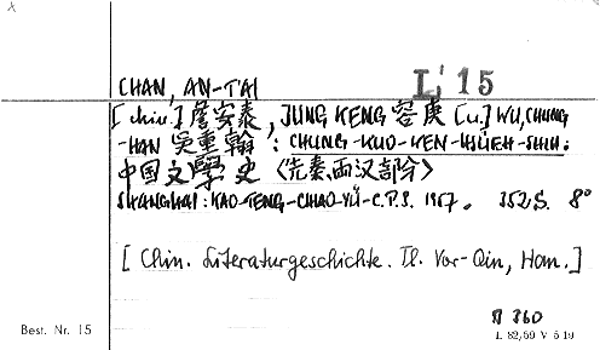 CHAN, AN-T'AI
L' 15
[chin.] 詹安泰, JUNG KENG 容庚 [u.] WU, CHUNG
-HAN 吳重翰 : CHUNG-KUO-WEN-HSÜEH-SHIH.
中国文學史〈先秦、两汉部分〉
SHANGHAI: KAO-TENG-CHIAO-YÜ-C.P.S. 1957. 352 S. 8°
[Chin. Literaturgeschichte. Tl. Vor-Qin, Han.]
360
Best. Nr. 15
L 82,69 V 5 19